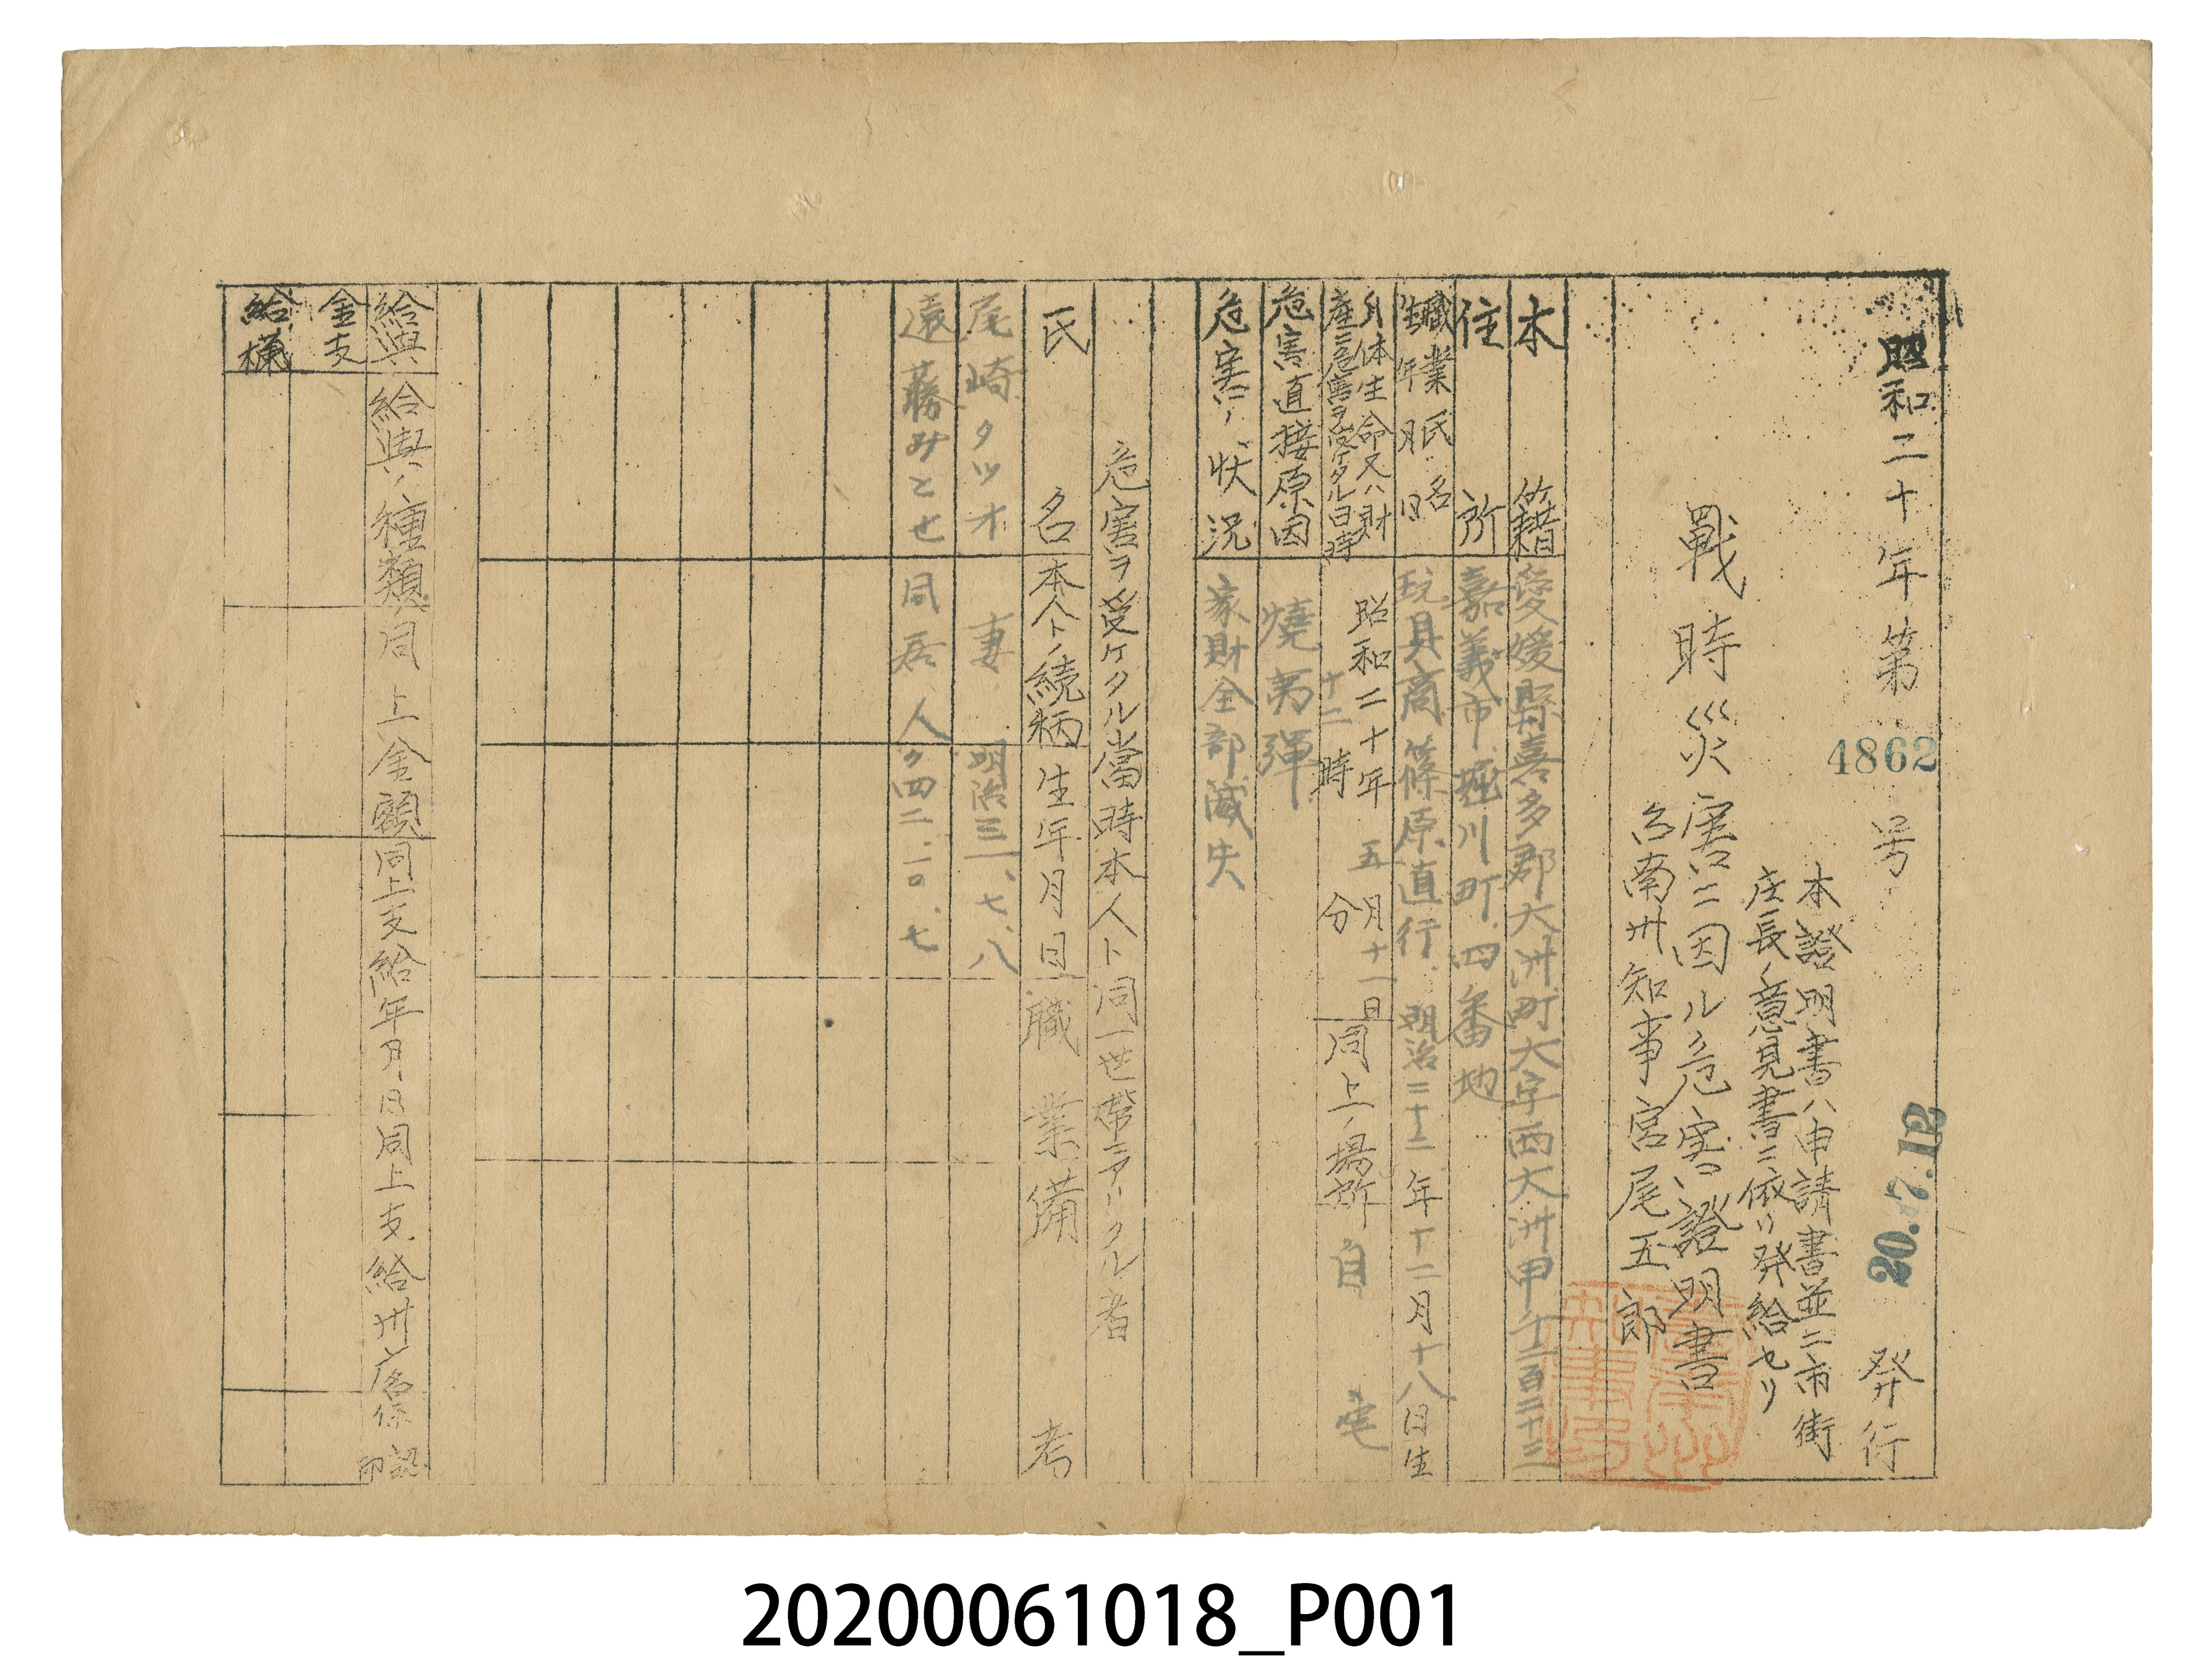 昭和二十年第4862号 20.7.12 発行
本證明書ハ申請書並ニ市街
庄長ノ意見書ニ依リ発給セリ
戰時災害ニ因ル危害證明書
台南州知事宮尾五郎
本籍 愛媛縣喜多郡大洲町大字西大洲甲千二百二十三
住所 嘉義市堀川町四番地
職業氏名
生年月日 玩具商 篠原直行 明治二十二年十二月十八日生
身体生命又ハ財
産ニ危害ヲ受ケタル日時 昭和二十年五月十一日
十二時 分 同上ノ場所 自宅
危害直接原因 燒夷彈
危害ノ状況 家財全部滅失
危害ヲ受ケタル當時本人ト同一世帶ニアリタル者
氏名 本人トノ続柄 生年月日 職業 備考
尾崎タツオ 妻 明治三一、七、八
遠藤みとせ 同居人 〃四二、一〇、七
給與 給與ノ種類 同上金額 同上支給年月日 同上支給州庁名 係認印
金支
給欄
20200061018_P001